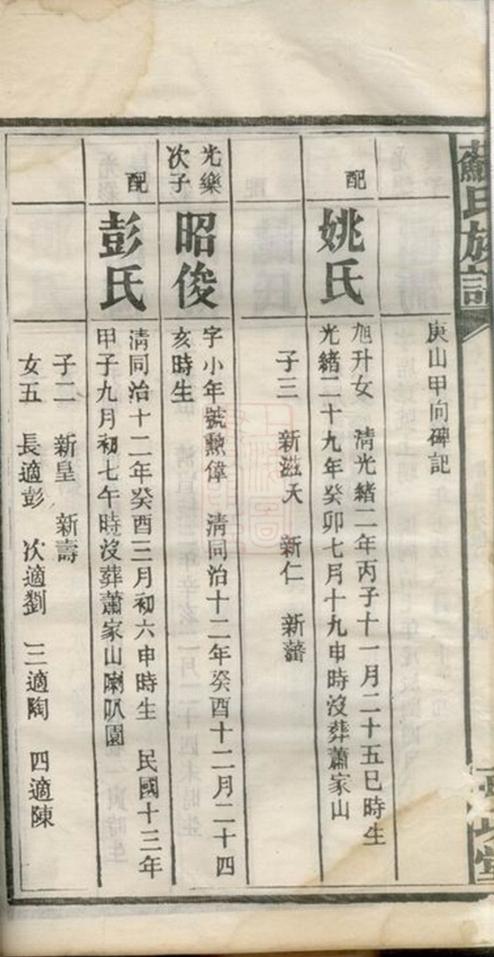 蘇氏族記
庚山甲向碑記
配
姚氏
旭升女 清光緒二年丙子十一月二十五巳時生
光緒二十九年癸卯七月十九申時沒葬蕭家山
子三 新滋夭 新仁 新蕃
光樂
次子
昭俊
字小年號勲偉 清同治十二年癸酉十二月二十四
亥時生
配
彭氏
清同治十二年癸酉三月初六申時生 民國十三年
甲子九月初七午時沒葬蕭家山喇叭園
子二 新皇 新壽
女五 長適彭 次適劉 三適陶 四適陳
堂